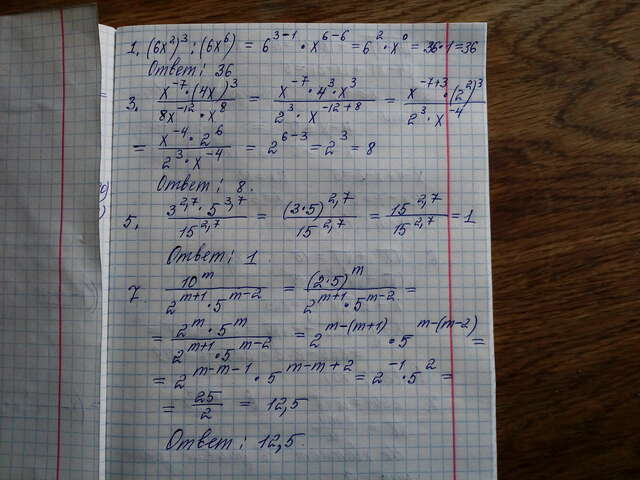 1. (6x²)³ : (6x⁶) = 6³⁻¹ · x⁶⁻⁶ = 6² · x⁰ = 36·1 = 36
Ответ: 36
3. x⁻⁷·(4x)³ / 8x⁻¹²·x⁸ = x⁻⁷·4³·x³ / 2³·x⁻¹²⁺⁸ = x⁻⁷⁺³·(2²)³ / 2³·x⁻⁴
= x⁻⁴·2⁶ / 2³·x⁻⁴ = 2⁶⁻³ = 2³ = 8
Ответ: 8.
5. 3^2,7 · 5^3,7 / 15^2,7 = (3·5)^2,7 / 15^2,7 = 15^2,7 / 15^2,7 = 1
Ответ: 1
7. 10^m / 2^m+1 · 5^m-2 = (2·5)^m / 2^m+1 · 5^m-2 =
= 2^m · 5^m / 2^m+1 · 5^m-2 = 2^m-(m+1) · 5^m-(m-2) =
= 2^m-m-1 · 5^m-m+2 = 2⁻¹ · 5² =
= 25/2 = 12,5
Ответ: 12,5.